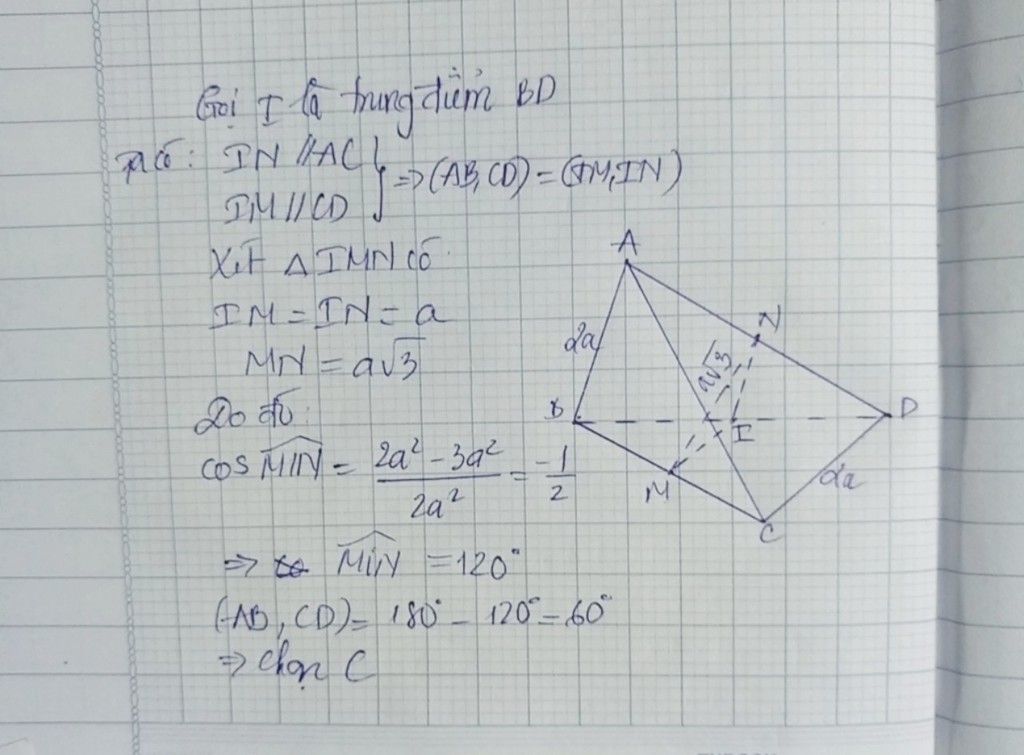 Gọi I là trung điểm BD
Ta có: IN // AC
IM // CD
} => (AB, CD) = (IM, IN)
Xét △ IMN có
IM = IN = a
MN = a√3
Do đó:
cos MIN = (2a² - 3a²) / 2a² = -1/2
=> MIN = 120°
(AB, CD) = 180° - 120° = 60°
=> chọn C
A
N
2a
a√3
B
I
D
M
2a
C